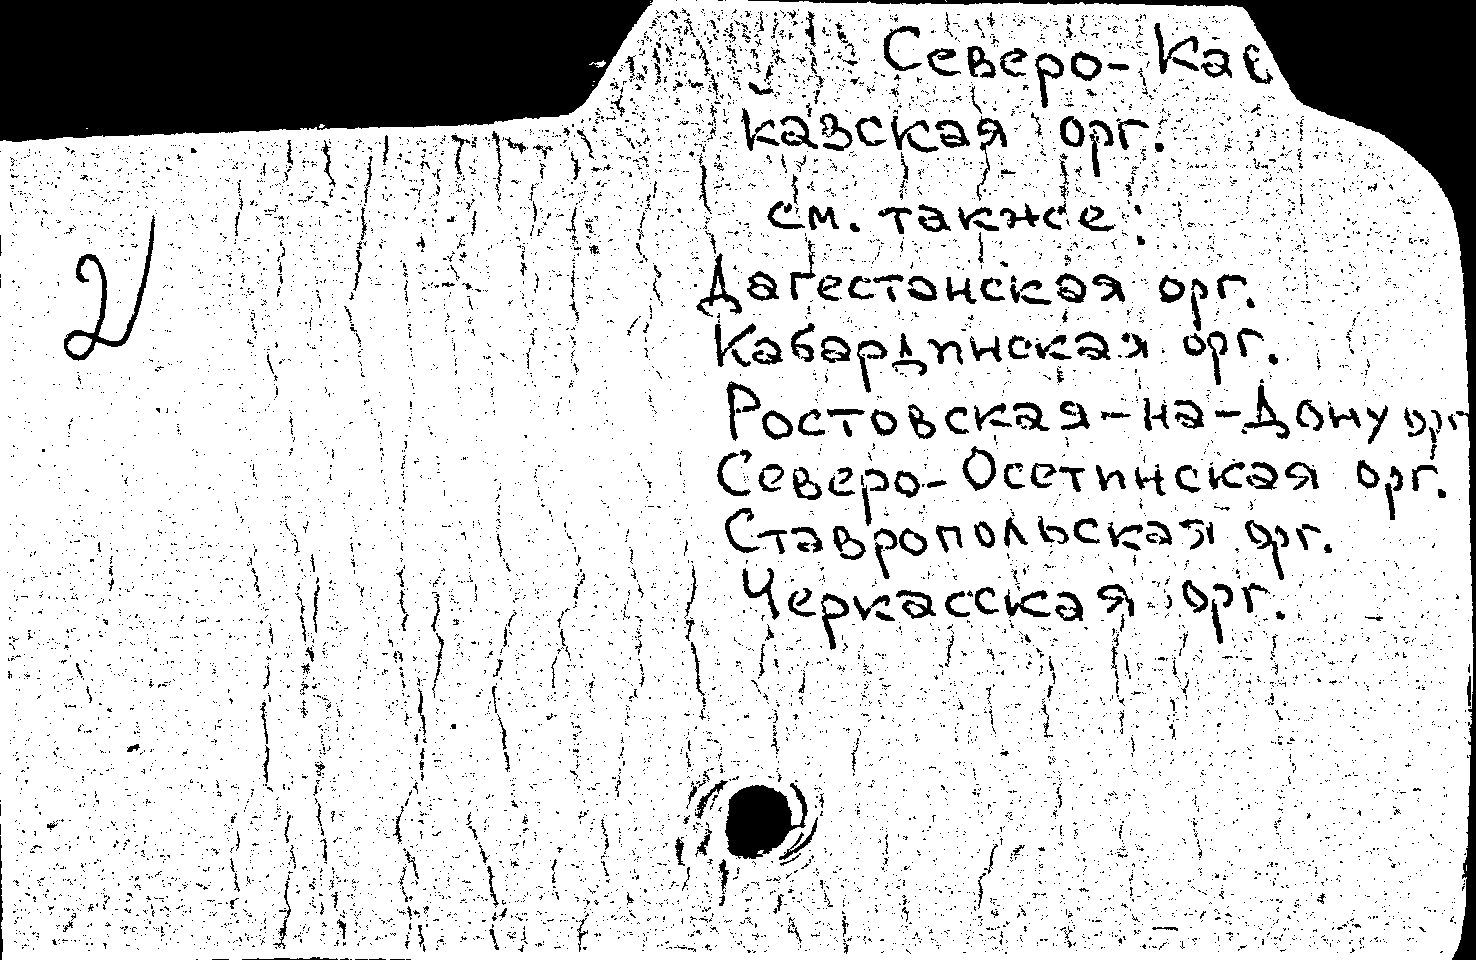 Северо-Кав
казская орг.
см. также:
Дагестанская орг.
Кабардинская орг.
Ростовская-на-Дону орг
Северо-Осетинская орг.
Ставропольская орг.
Черкасская орг.